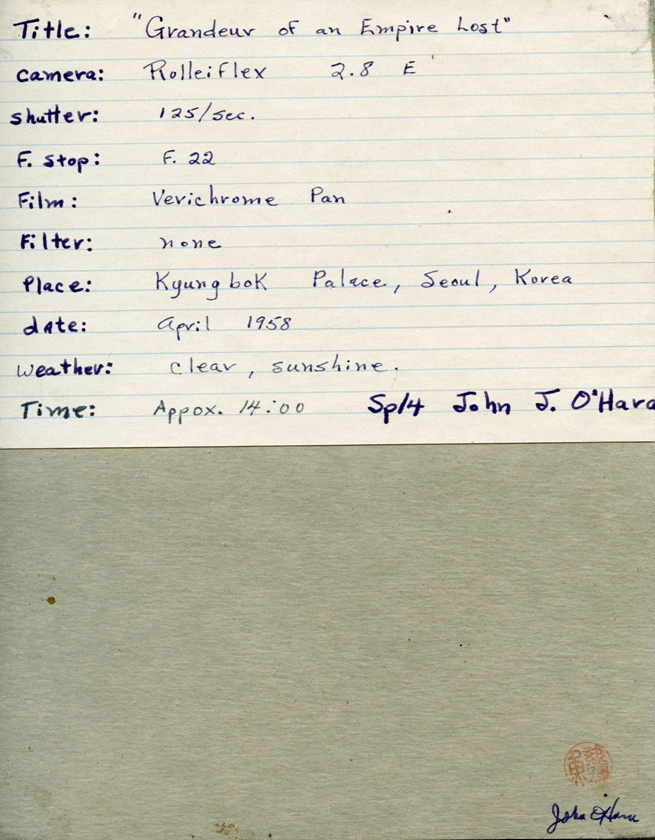 Title: "Grandeur of an Empire Lost"
camera: Rolleiflex 2.8 E
shutter: 125/sec.
F. stop: F. 22
Film: Verichrome Pan
Filter: none
Place: Kyungbok Palace, Seoul, Korea
date: April 1958
weather: clear, sunshine.
Time: Appox. 14:00 Sp/4 John J. O'Hara
John O'Hara